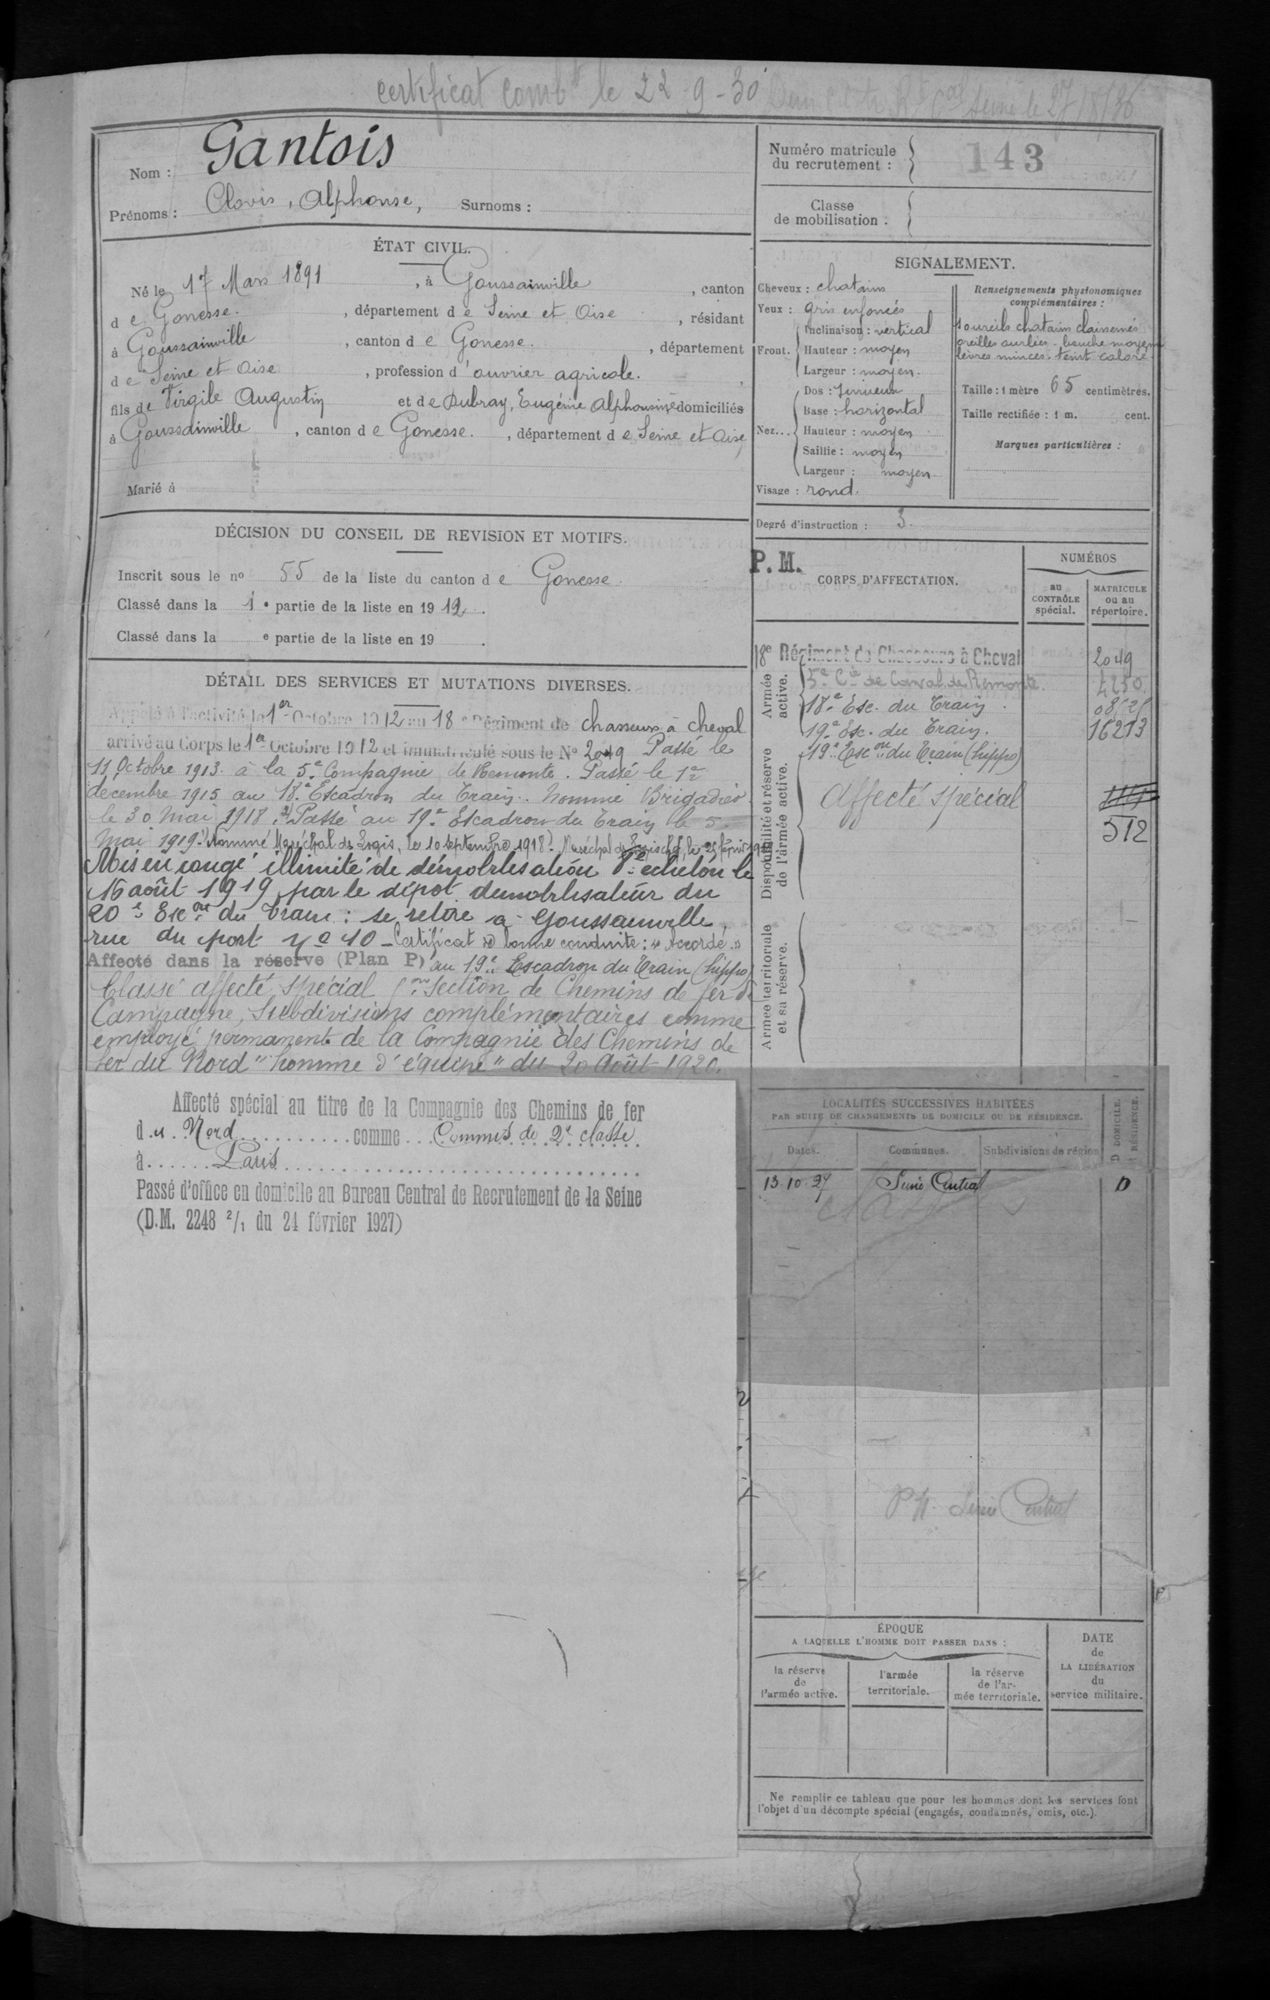 certificat comb^t le 22-9-30
Nom : Gantois
Prénoms : Clovis, Alphonse, Surnoms :
ÉTAT CIVIL.
Né le 17 Mars 1891, à Goussainville, canton
de Gonesse, département de Seine et Oise, résidant
à Goussainville, canton de Gonesse, département
de Seine et Oise, profession d'ouvrier agricole.
fils de Virgile Augustin et de Dubray, Eugénie Alphonsine domiciliés
à Goussainville, canton de Gonesse, département de Seine et Oise
Marié à
DÉCISION DU CONSEIL DE REVISION ET MOTIFS.
Inscrit sous le n° 55 de la liste du canton de Gonesse.
Classé dans la 1e partie de la liste en 1912.
Classé dans la e partie de la liste en 19 .
DÉTAIL DES SERVICES ET MUTATIONS DIVERSES.
Appelé à l'activité le 1er Octobre 1912 au 18e Régiment de chasseurs à cheval
arrivé au Corps le 1er Octobre 1912 et immatriculé sous le N° 2049 Passé le
11 Octobre 1913 à la 5e Compagnie de Remonte. Passé le 1er
décembre 1915 au 18e Escadron du Train. Nommé Brigadier
le 30 Mai 1918. Passé au 19e Escadron du Train le 5
Mai 1919. (Nommé Maréchal des Logis, le 10 septembre 1918). Maréchal des Logis chef, le 25
Mis en congé illimité de démobilisation 7e échelon le
16 août 1919 par le dépot démobilisateur du
20e Esc^on du train : se retire à Goussainville,
rue du pont N° 10 - Certificat de bonne conduite : "Accordé"
Affecté dans la réserve (Plan P) au 19e Escadron du Train (hippo)
Classé affecté spécial 5me Section de Chemins de fer de
Campagne, Subdivisions complémentaires comme
employé permanent de la Compagnie des Chemins de
fer du Nord "homme d'équipe" du 20 Août 1920.
Affecté spécial au titre de la Compagnie des Chemins de fer
du Nord comme Commis de 2e classe
à Paris
Passé d'office en domicile au Bureau Central de Recrutement de la Seine
(D.M. 2248 2/1 du 24 février 1927)
Numéro matricule
du recrutement : 143
Classe
de mobilisation :
SIGNALEMENT.
Cheveux : chatains
Yeux : gris enfoncés
Front. Inclinaison : vertical
Hauteur : moyen
Largeur : moyen.
Nez... Dos : sinueux
Base : horizontal
Hauteur : moyen
Saillie : moyen
Largeur : moyen
Visage : rond.
Renseignements physionomiques
complémentaires :
sourcils chatain clairsemés
oreilles ourlées - bouche moyenne
lèvres minces - teint coloré.
Taille : 1 mètre 65 centimètres.
Taille rectifiée : 1 m. cent.
Marques particulières :
Degré d'instruction : 3
P. M.
CORPS D'AFFECTATION.
NUMÉROS
au CONTRÔLE spécial.
MATRICULE ou au répertoire.
Armée active.
18e Régiment de Chasseurs à Cheval 2049
5e Cie de Caval. de Remonte 4250
18e Esc. du Train.
19e Esc. du Train. 16213
Disponibilité et réserve de l'armée active.
19e Esc^on du Train (hippo)
Affecté spécial 512
Armée territoriale et sa réserve.
LOCALITÉS SUCCESSIVES HABITÉES
PAR SUITE DE CHANGEMENTS DE DOMICILE OU DE RÉSIDENCE.
Dates. Communes. Subdivisions de région D DOMICILE. RÉSIDENCE.
13.10.27 Seine Central D
Seine Central
ÉPOQUE
A LAQUELLE L'HOMME DOIT PASSER DANS :
la réserve de l'armée active.
l'armée territoriale.
la réserve de l'armée territoriale.
DATE de LA LIBÉRATION du service militaire.
Ne remplir ce tableau que pour les hommes dont les services font
l'objet d'un décompte spécial (engagés, condamnés, omis, etc.).